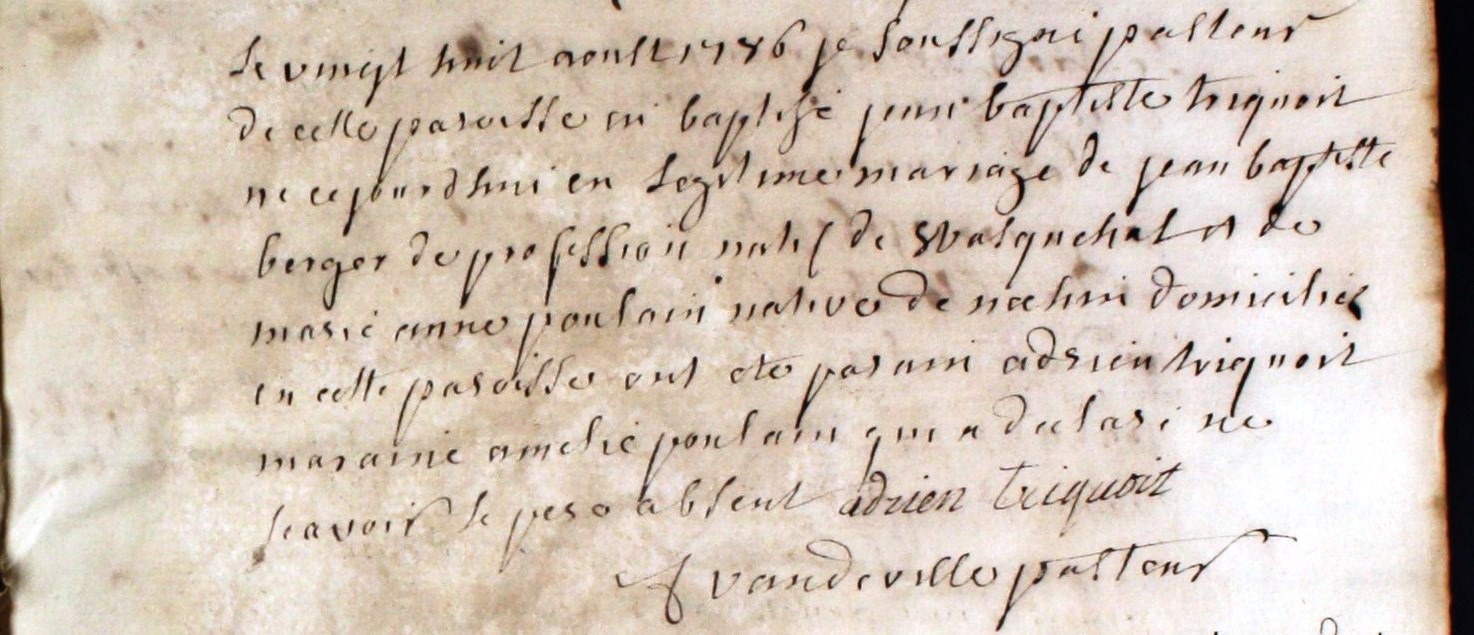 le vingt huit aoust 1786 je soussigné pasteur
de cette paroisse ai baptisé jean baptiste triquoit
ne ce jourd'hui en legitime mariage de jean baptiste
berger de profession natif de Wasquehal et de
marie anne poulain native de nechin domiciliés
en cette paroisse ont ete parain adrien triquoit
maraine amelie poulain qui a declaré ne
sçavoir le pere absent adrien triquoit
vandeville pasteur